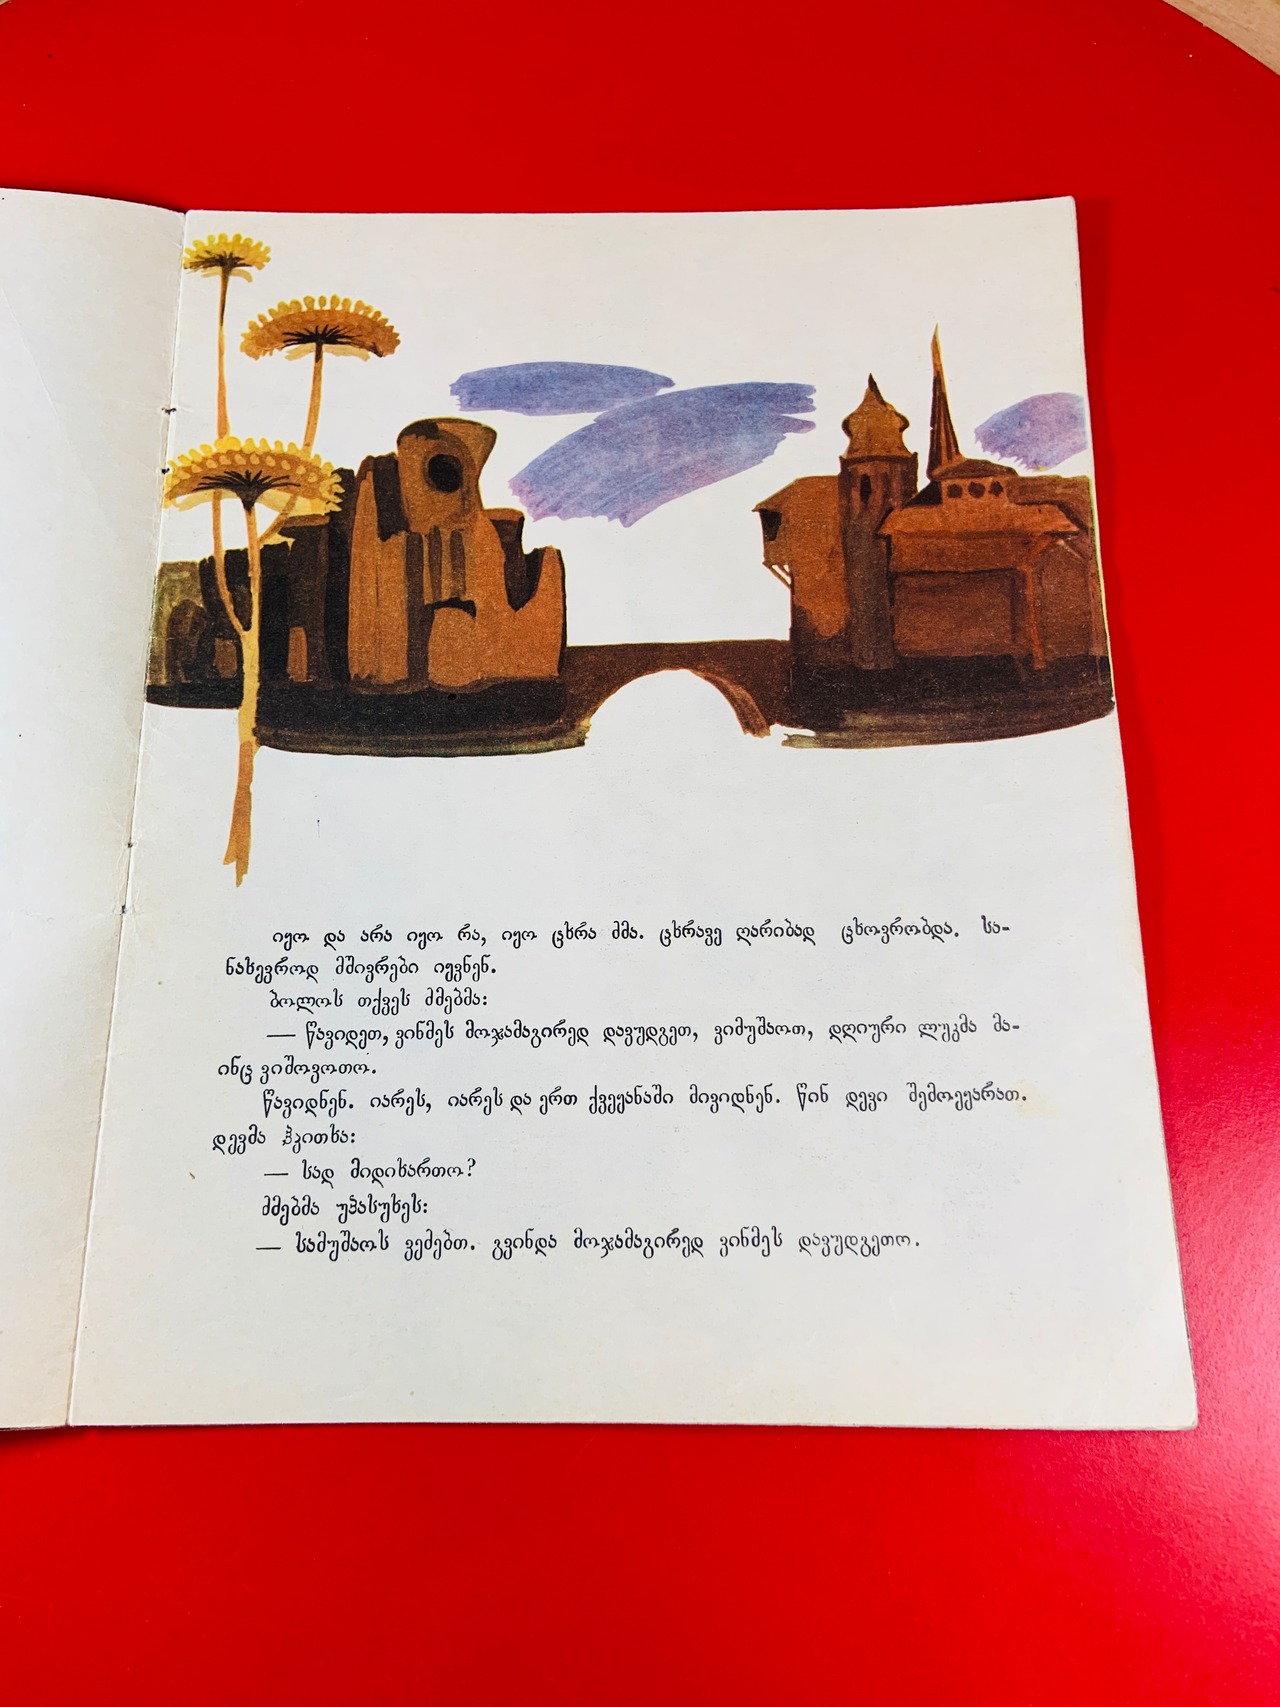 იყო და არა იყო რა, იყო ცხრა ძმა. ცხრავე ღარიბად ცხოვრობდა. სა-
ნახევროდ მშივრები იყვნენ.
ბოლოს თქვეს ძმებმა:
— წავიდეთ, ვინმეს მოჯამაგირედ დავუდგეთ, ვიმუშაოთ, დღიური ლუკმა მა-
ინც ვიშოვოთო.
წავიდნენ. იარეს, იარეს და ერთ ქვეყანაში მივიდნენ. წინ დევი შემოეყარათ.
დევმა ჰკითხა:
— სად მიდიხართო?
ძმებმა უპასუხეს:
— სამუშაოს ვეძებთ. გვინდა მოჯამაგირედ ვინმეს დავუდგეთო.